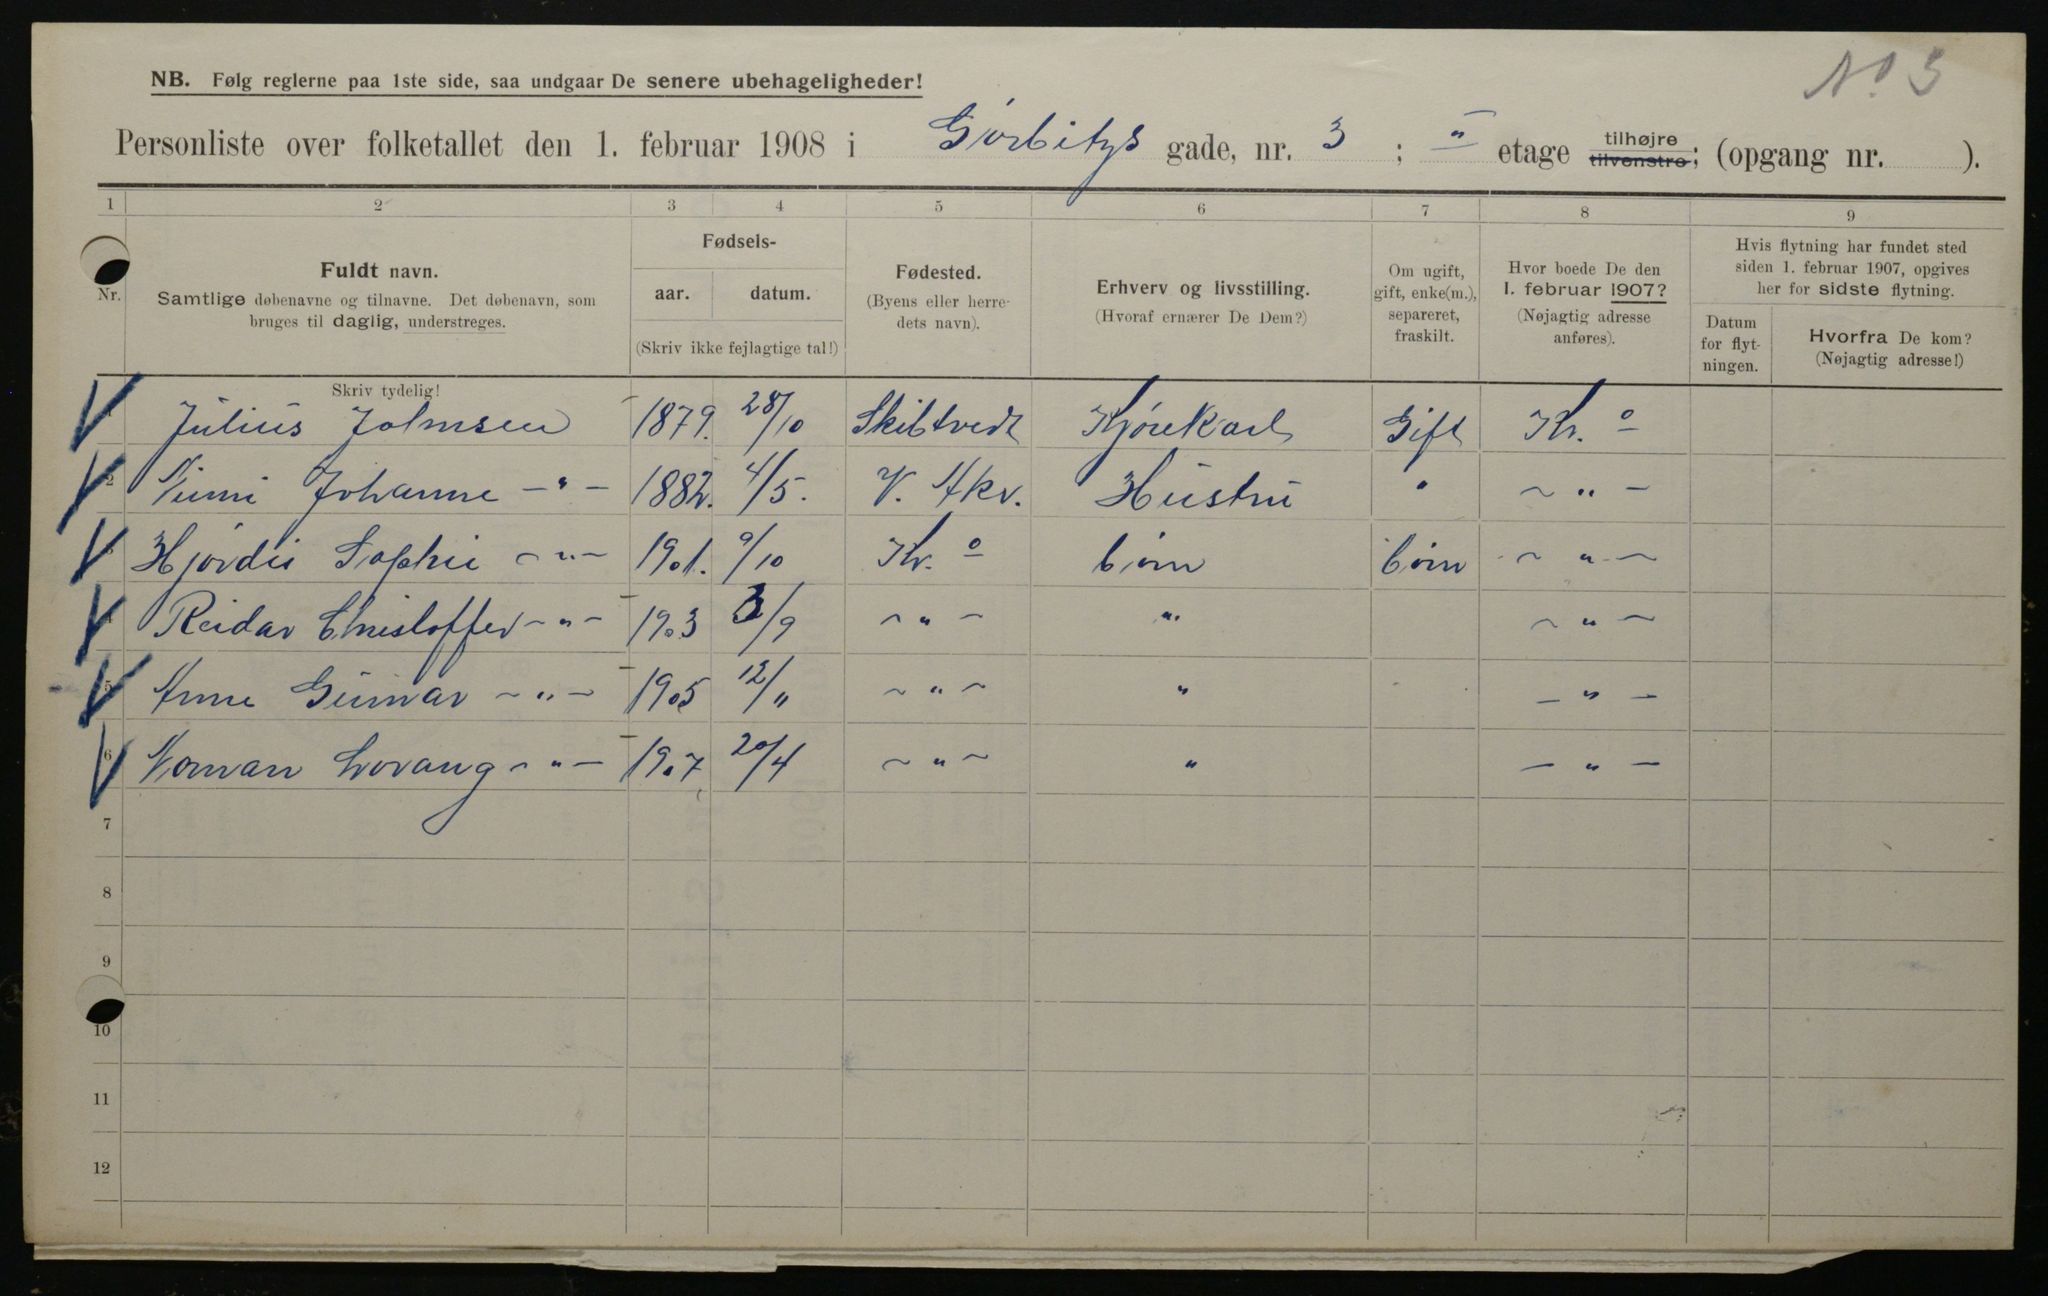 No 3
NB. Følg reglerne paa 1ste side, saa undgaar De senere ubehageligheder!
Personliste over folketallet den 1. februar 1908 i Gørbitys gade, nr. 3 ; II etage tilhøjre tilvenstre; (opgang nr. ).
1 2 3 4 5 6 7 8 9
Nr. Fuldt navn. Samtlige døbenavne og tilnavne. Det døbenavn, som bruges til daglig, understreges.
Fødsels- aar. datum. (Skriv ikke fejlagtige tal!)
Fødested. (Byens eller herredets navn).
Erhverv og livsstilling. (Hvoraf ernærer De Dem?)
Om ugift, gift, enke(m.), separeret, fraskilt.
Hvor boede De den 1. februar 1907? (Nøjagtig adresse anføres).
Hvis flytning har fundet sted siden 1. februar 1907, opgives her for sidste flytning.
Datum for flytningen. Hvorfra De kom? (Nøjagtig adresse!)
Skriv tydelig!
1 Julius Johnsen 1879. 28/10 Skibtvedt Kjørekarl Gift Kr. o
2 Johanne - " - 1882. 4/5. V. Akv. Hustru " ~ " -
3 Hjørdis Sophie ~ " - 1901. 9/10 Kr. o børn børn ~ " ~
4 Reidar Christoffer - " - 1903 3/9 ~ " ~ " ~ " ~
5 Anne Gunvar ~ " - 1905 12/11 ~ " ~ " - " -
6 Norman ~ " - 1907 20/4 ~ " ~ " - " -
7
8
9
10
11
12